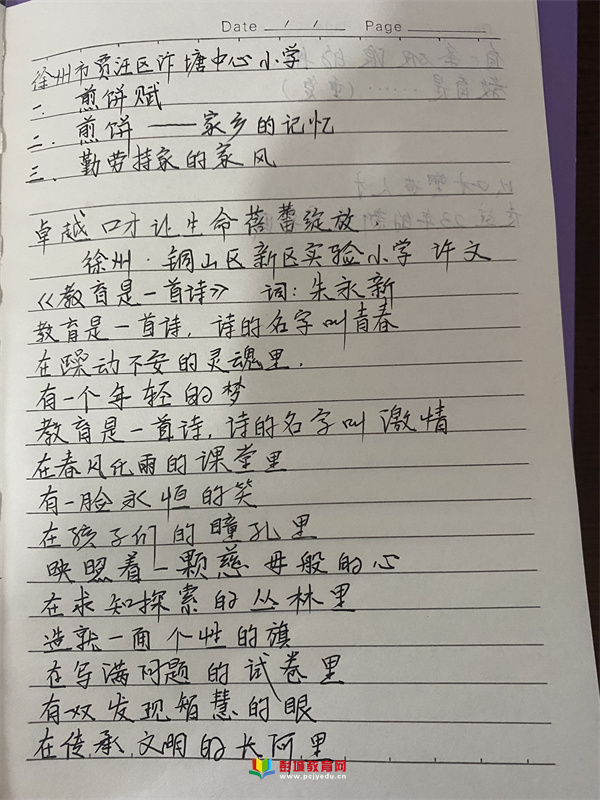 Date / / Page
徐州市贾汪区汴塘中心小学
一、煎饼赋
二、煎饼——家乡的记忆
三、勤劳持家的家风
卓越口才让生命蓓蕾绽放.
徐州·铜山区新区实验小学 许文
《教育是一首诗》 词:朱永新
教育是一首诗,诗的名字叫青春
在躁动不安的灵魂里.
有一个年轻的梦
教育是一首诗,诗的名字叫激情
在春风化雨的课堂里
有一脸永恒的笑
在孩子们的瞳孔里
映照着一颗慈母般的心
在求知探索的丛林里
造就一面个性的旗
在写满问题的试卷里
有双发现智慧的眼
在传.承.文明的长河里
彭城教育网
www.pcjyedu.cn